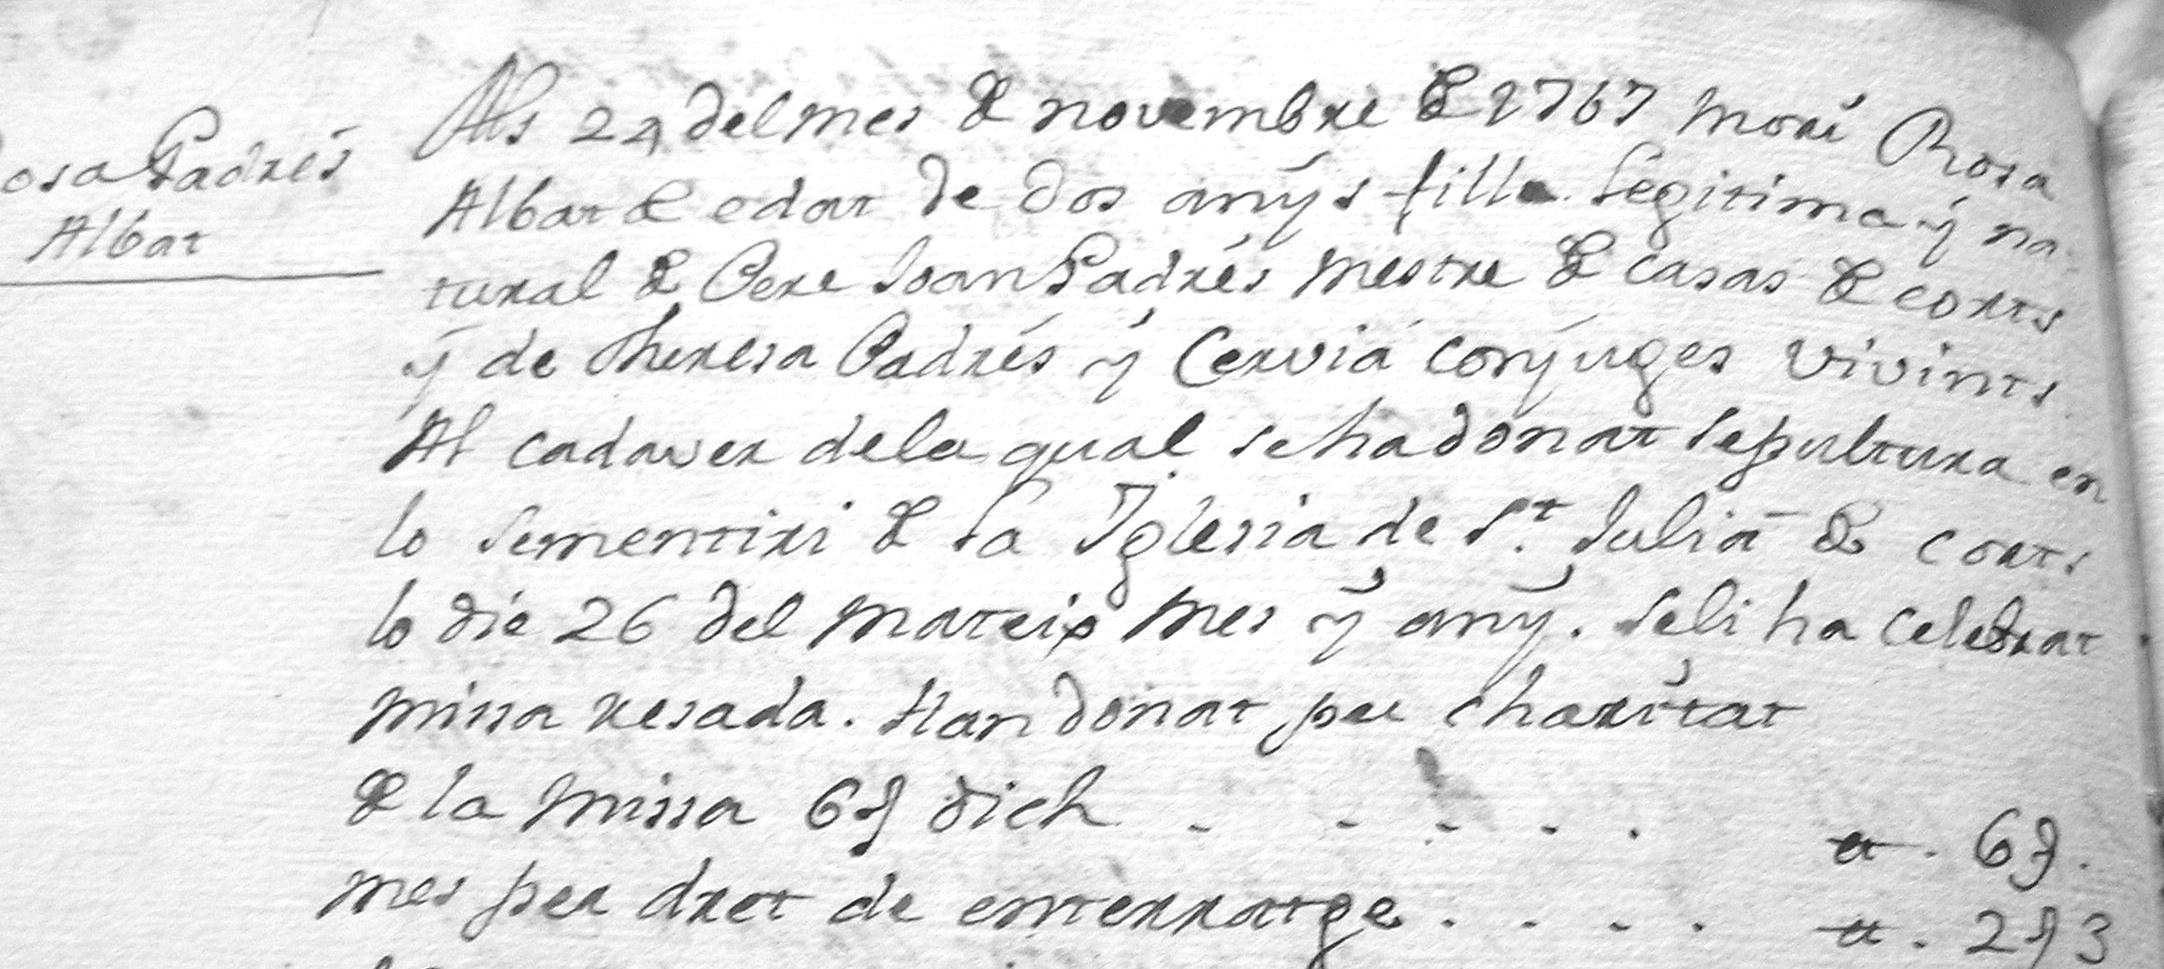 osa Padrés
Albat
Als 24 del mes de novembre de 1767 morí Rosa
Albat de edat de dos anÿs filla llegitima ÿ na-
tural de Pere Joan Padrés Mestre de casas de corts
ÿ de Theresa Padrés ÿ Cerviá conÿuges vivints.
Al cadaver dela qual seha donat sepultura en
lo sementiri de la Iglesia de St. Julià de corts
lo die 26 del mateix mes ÿ anÿ. seli ha celebrat
missa resada. Han donat per charitat
de la missa 6 s dich . . . . .
6 s.
mes per dret de enterratge . . . .
2 s 3